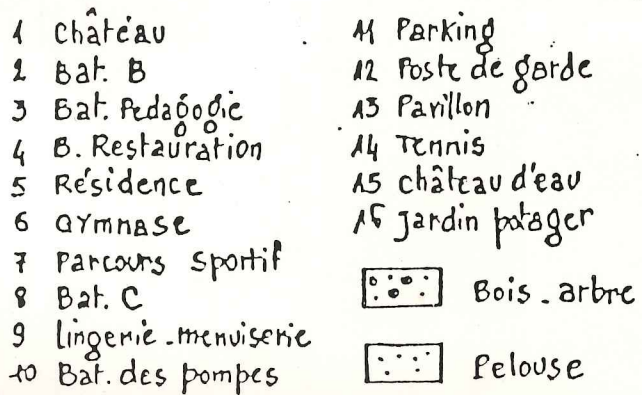 1 Château
2 Bat. B
3 Bat. Pedagogie
4 B. Restauration
5 Résidence
6 Gymnase
7 Parcours sportif
8 Bat. C
9 lingerie-menuiserie
10 Bat. des pompes
11 Parking
12 Poste de garde
13 Pavillon
14 Tennis
15 château d'eau
16 jardin potager
Bois-arbre
Pelouse